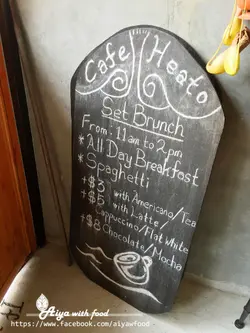 Cafe Heato
Set Brunch
From: 11am to 2pm
*All Day Breakfast
*Spaghetti
+$3 with Americano/Tea
+$5 with Latte/
Cappuccino/Flat White
+$8 Chocolate/Mocha
Aiya with food
https://www.facebook.com/aiyawfood